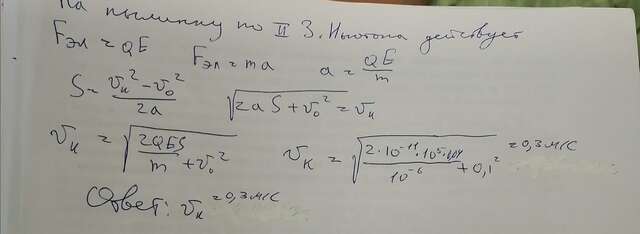 На пылинку по II З. Ньютона действует
Fэл = QE Fэл = ma a = QE/m
S = (vк² - v₀²)/2a √(2aS + v₀²) = vк
vк = √(2QES/m + v₀²) vк = √((2·10⁻¹¹·10⁵·)/10⁻⁶ + 0,1²) = 0,3 м/с
Ответ: vк = 0,3 м/с